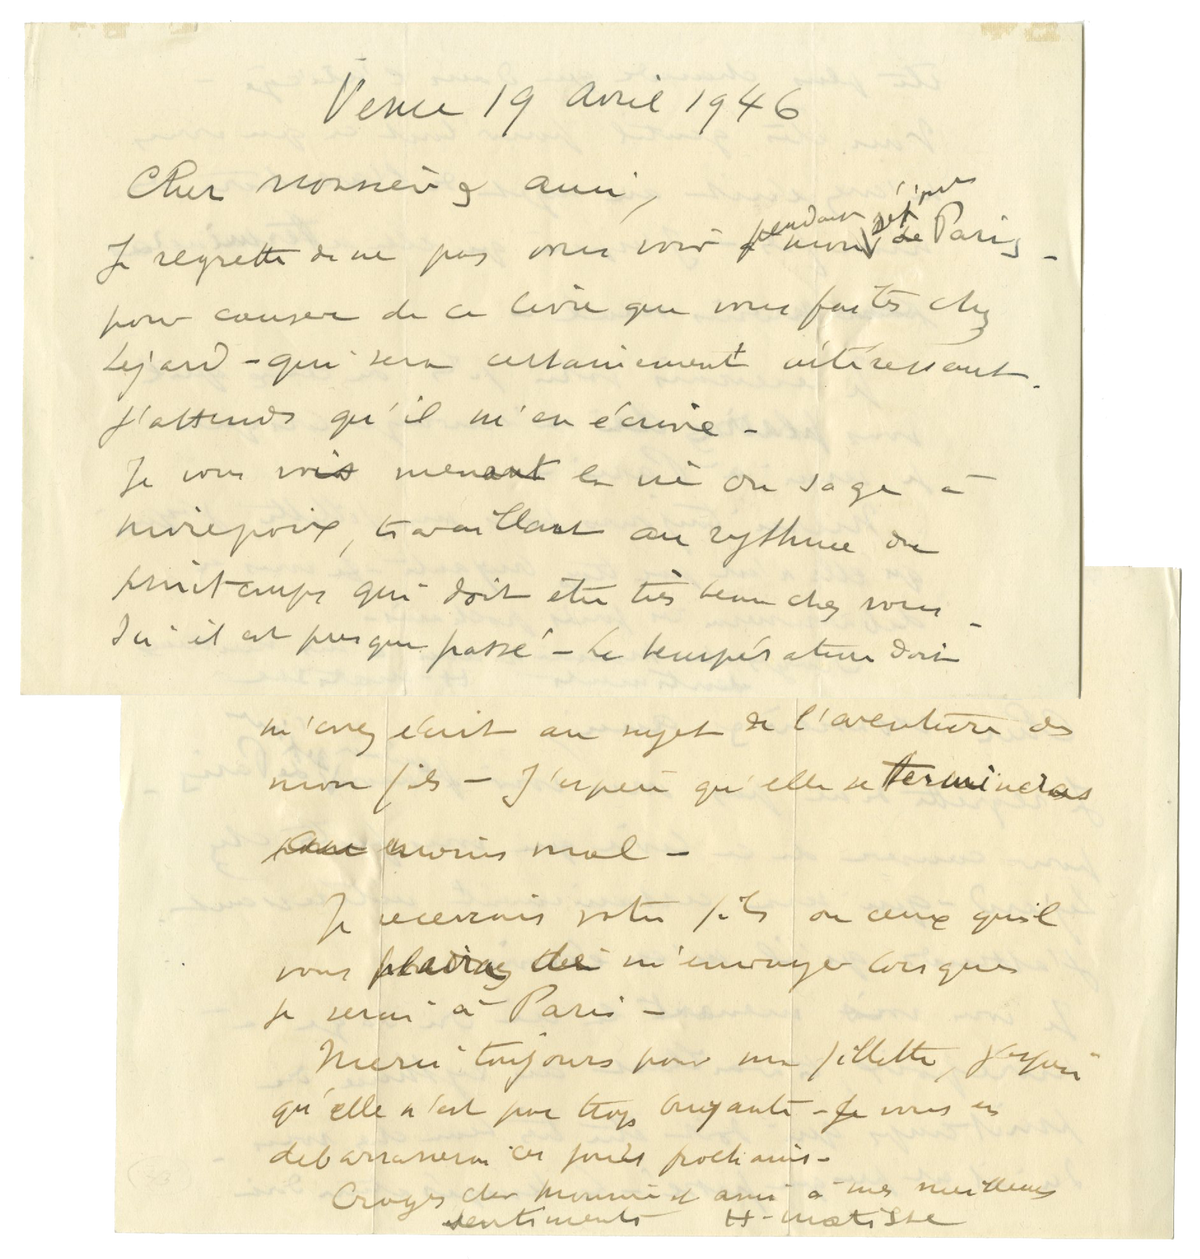 Vence 19 avril 1946
Cher Monsieur & ami,
Je regrette de ne pas vous voir pendant mon séjour de Paris -
pour causer de ce livre que vous faites chez
Lejard - qui sera certainement intéressant.
J'attends qu'il m'en écrive -
Je vous vois menant la vie du sage à
mirepoix, travaillant au rythme du
printemps qui doit être très beau chez vous -
Ici il est presque passé - La température doit
m'avez écrit au sujet de l'aventure de
mon fils - J'espère qu'elle se terminera
moins mal -
Je recevrais votre fils ou ceux qu'il
vous plaira de m'envoyer lorsque
je serai à Paris -
Merci toujours pour ma fillette, j'espère
qu'elle n'est pas trop bruyante - Je vous en
débarrasserai ces jours prochains -
Croyez cher Monsieur et ami à mes meilleurs
sentiments H-matisse